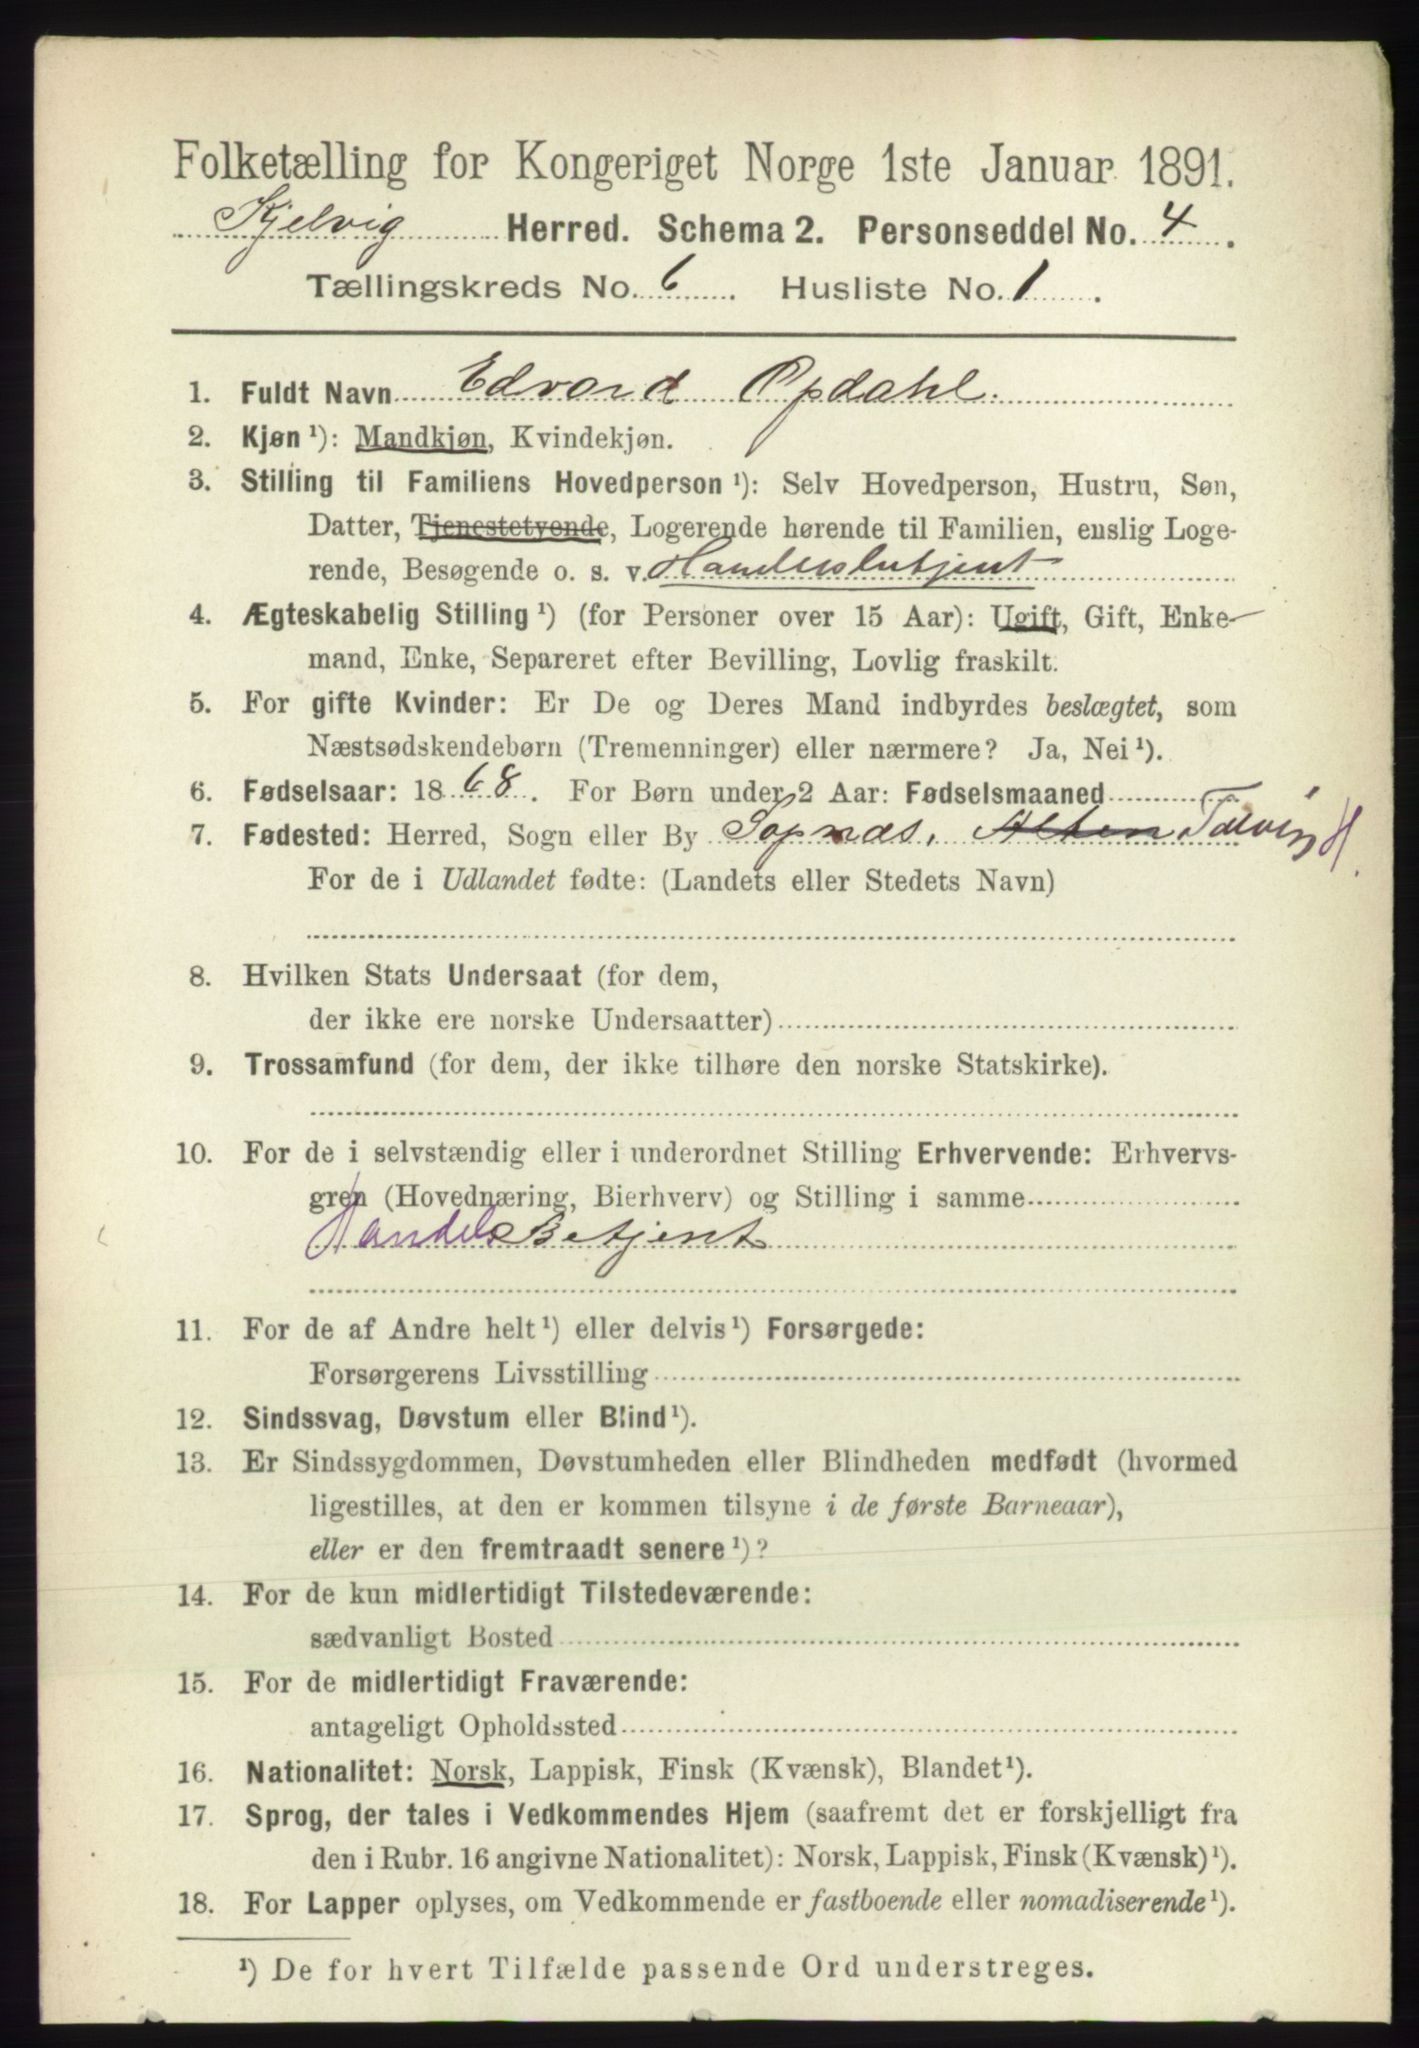 Folketælling for Kongeriget Norge 1ste Januar 1891.
Kjelvig Herred. Schema 2. Personseddel No. 4.
Tællingskreds No. 6. Husliste No. 1.
1. Fuldt Navn Edvard Opdahl.
2. Kjøn ¹): Mandkjøn, Kvindekjøn.
3. Stilling til Familiens Hovedperson ¹): Selv Hovedperson, Hustru, Søn,
Datter, Tjenestetyende, Logerende hørende til Familien, enslig Loge-
rende, Besøgende o. s. v. Handelsbetjent
4. Ægteskabelig Stilling ¹) (for Personer over 15 Aar): Ugift, Gift, Enke-
mand, Enke, Separeret efter Bevilling, Lovlig fraskilt.
5. For gifte Kvinder: Er De og Deres Mand indbyrdes beslægtet, som
Næstsødskendebørn (Tremenninger) eller nærmere? Ja, Nei ¹).
6. Fødselsaar: 1868. For Børn under 2 Aar: Fødselsmaaned
7. Fødested: Herred, Sogn eller By Sopnæs, Alten Talvig H.
For de i Udlandet fødte: (Landets eller Stedets Navn)
8. Hvilken Stats Undersaat (for dem,
der ikke ere norske Undersaatter)
9. Trossamfund (for dem, der ikke tilhøre den norske Statskirke).
10. For de i selvstændig eller i underordnet Stilling Erhvervende: Erhvervs-
gren (Hovednæring, Bierhverv) og Stilling i samme
Handels Betjent
11. For de af Andre helt ¹) eller delvis ¹) Forsørgede:
Forsørgerens Livsstilling
12. Sindssvag, Døvstum eller Blind ¹).
13. Er Sindssygdommen, Døvstumheden eller Blindheden medfødt (hvormed
ligestilles, at den er kommen tilsyne i de første Barneaar),
eller er den fremtraadt senere ¹)?
14. For de kun midlertidigt Tilstedeværende:
sædvanligt Bosted
15. For de midlertidigt Fraværende:
antageligt Opholdssted
16. Nationalitet: Norsk, Lappisk, Finsk (Kvænsk), Blandet ¹).
17. Sprog, der tales i Vedkommendes Hjem (saafremt det er forskjelligt fra
den i Rubr. 16 angivne Nationalitet): Norsk, Lappisk, Finsk (Kvænsk) ¹).
18. For Lapper oplyses, om Vedkommende er fastboende eller nomadiserende ¹).
¹) De for hvert Tilfælde passende Ord understreges.